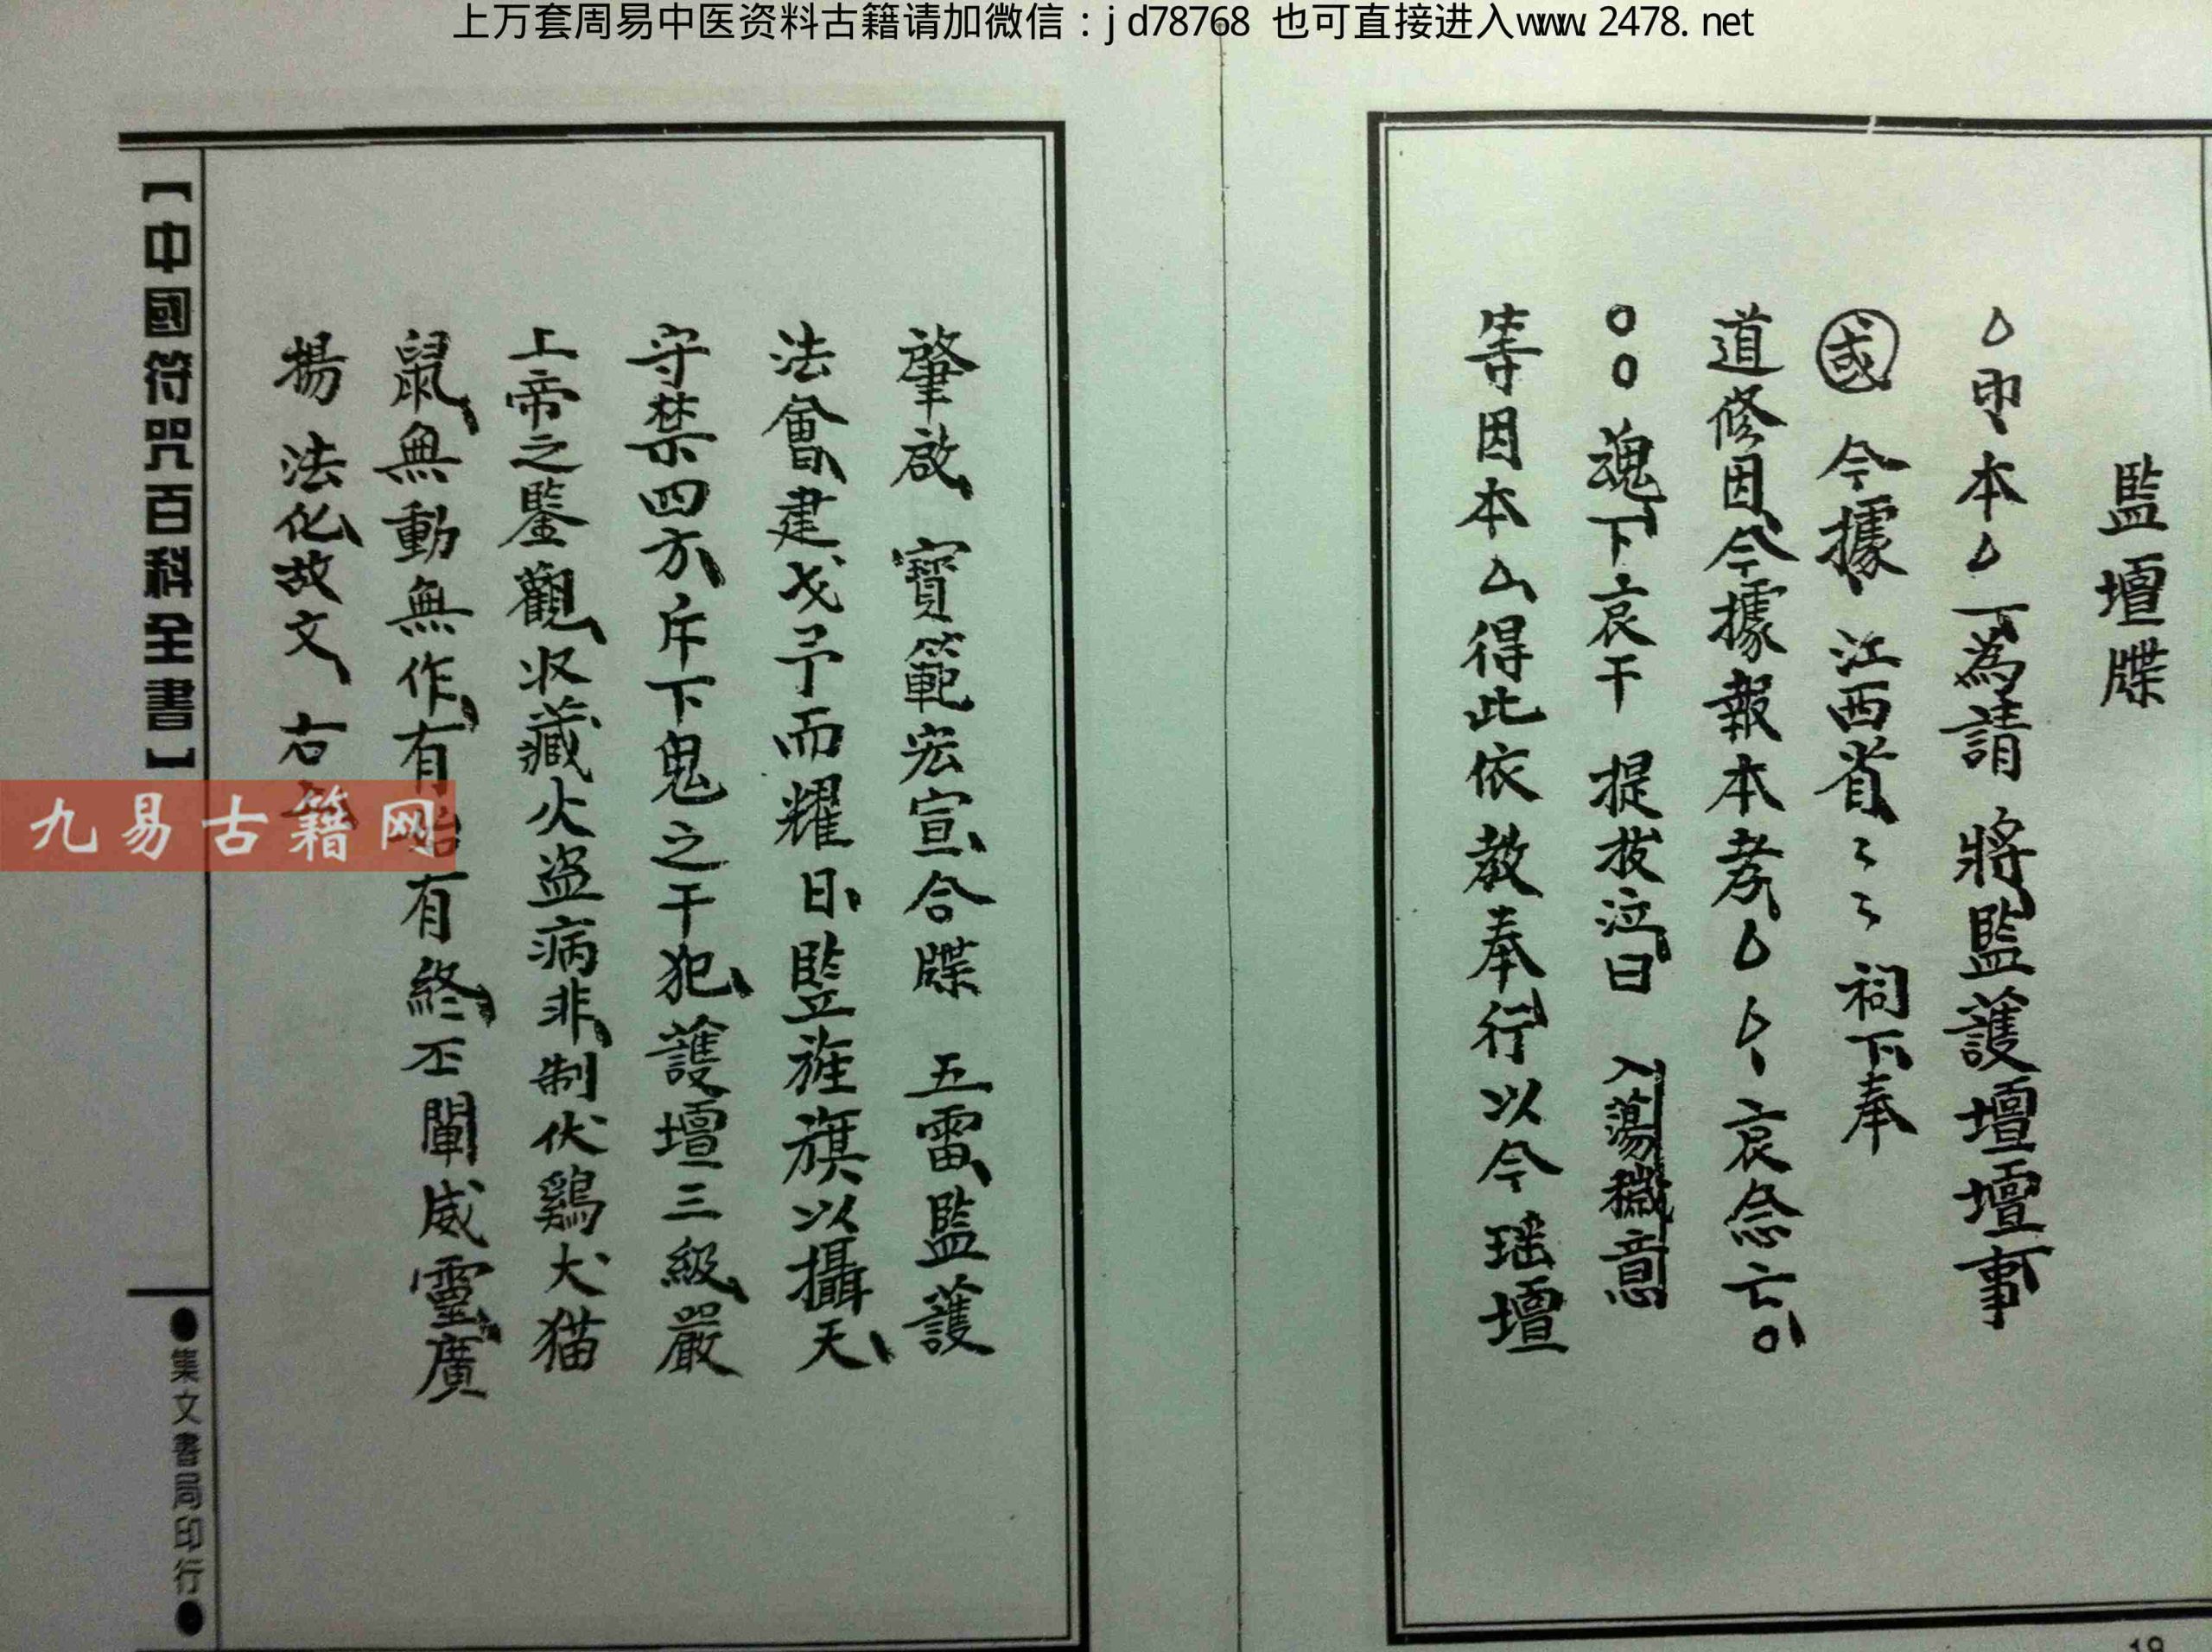 上万套周易中医资料古籍请加微信：jd78768 也可直接进入www.2478.net
監壇牒
本 為請 將監護壇壇事
今據 江西省 祠下奉
道修因今據報本孝 哀念亡
○○魂下哀干 提拔泣日 入蕩穢意
等因本 得此依教奉行以今 瑶壇
肇啟 寶範宏宣合牒 五雷監護
法會建戈予而耀日監旌旗以攝天
守禁四方斥下鬼之干犯護壇三級嚴
上帝之鑒觀收藏火盗病非制伏鷄犬猫
鼠無動無作有始有終丕闡威靈廣
揚 法化故文 右
【中國符咒百科全書】
●集文書局印行●
九易古籍网